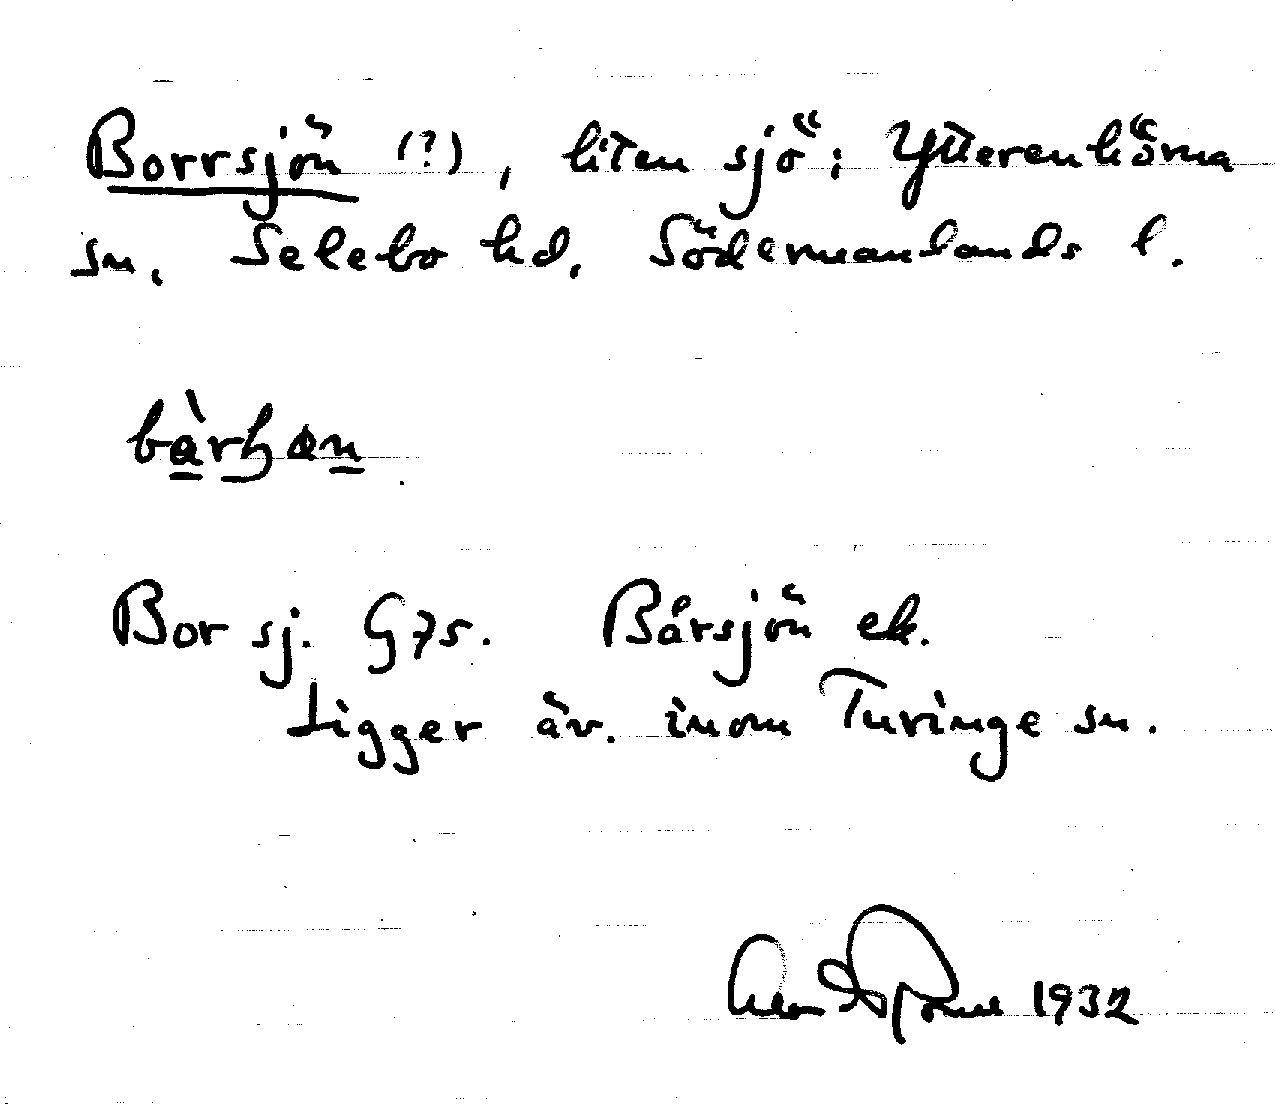 Borrsjön (?), liten sjö; Ytterenhörna
sn. Selebo hd. Södermanlands l.
Bor sj. G75. Bårsjön ek.
Ligger äv. inom Turinge sn.
1932